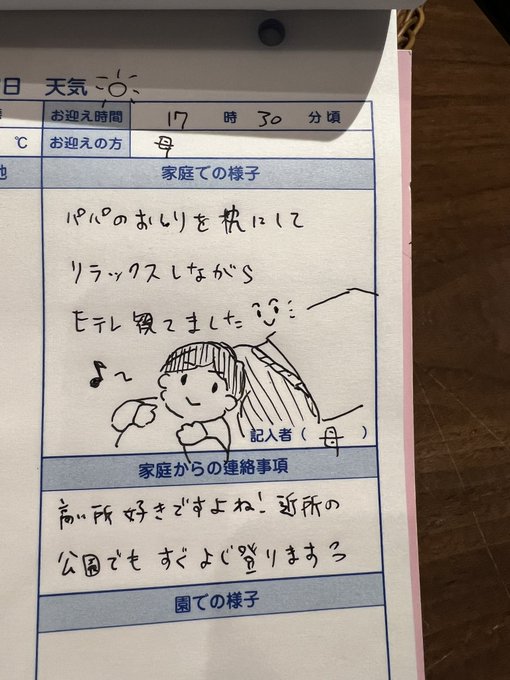 日 天気
お迎え時間 17 時 30 分頃
℃ お迎えの方 母
家庭での様子
パパのおしりを枕にして
リラックスしながら
Eテレ観てました
記入者( 母 )
家庭からの連絡事項
高い所好きですよね!近所の
公園でもすぐよじ登ります
園での様子